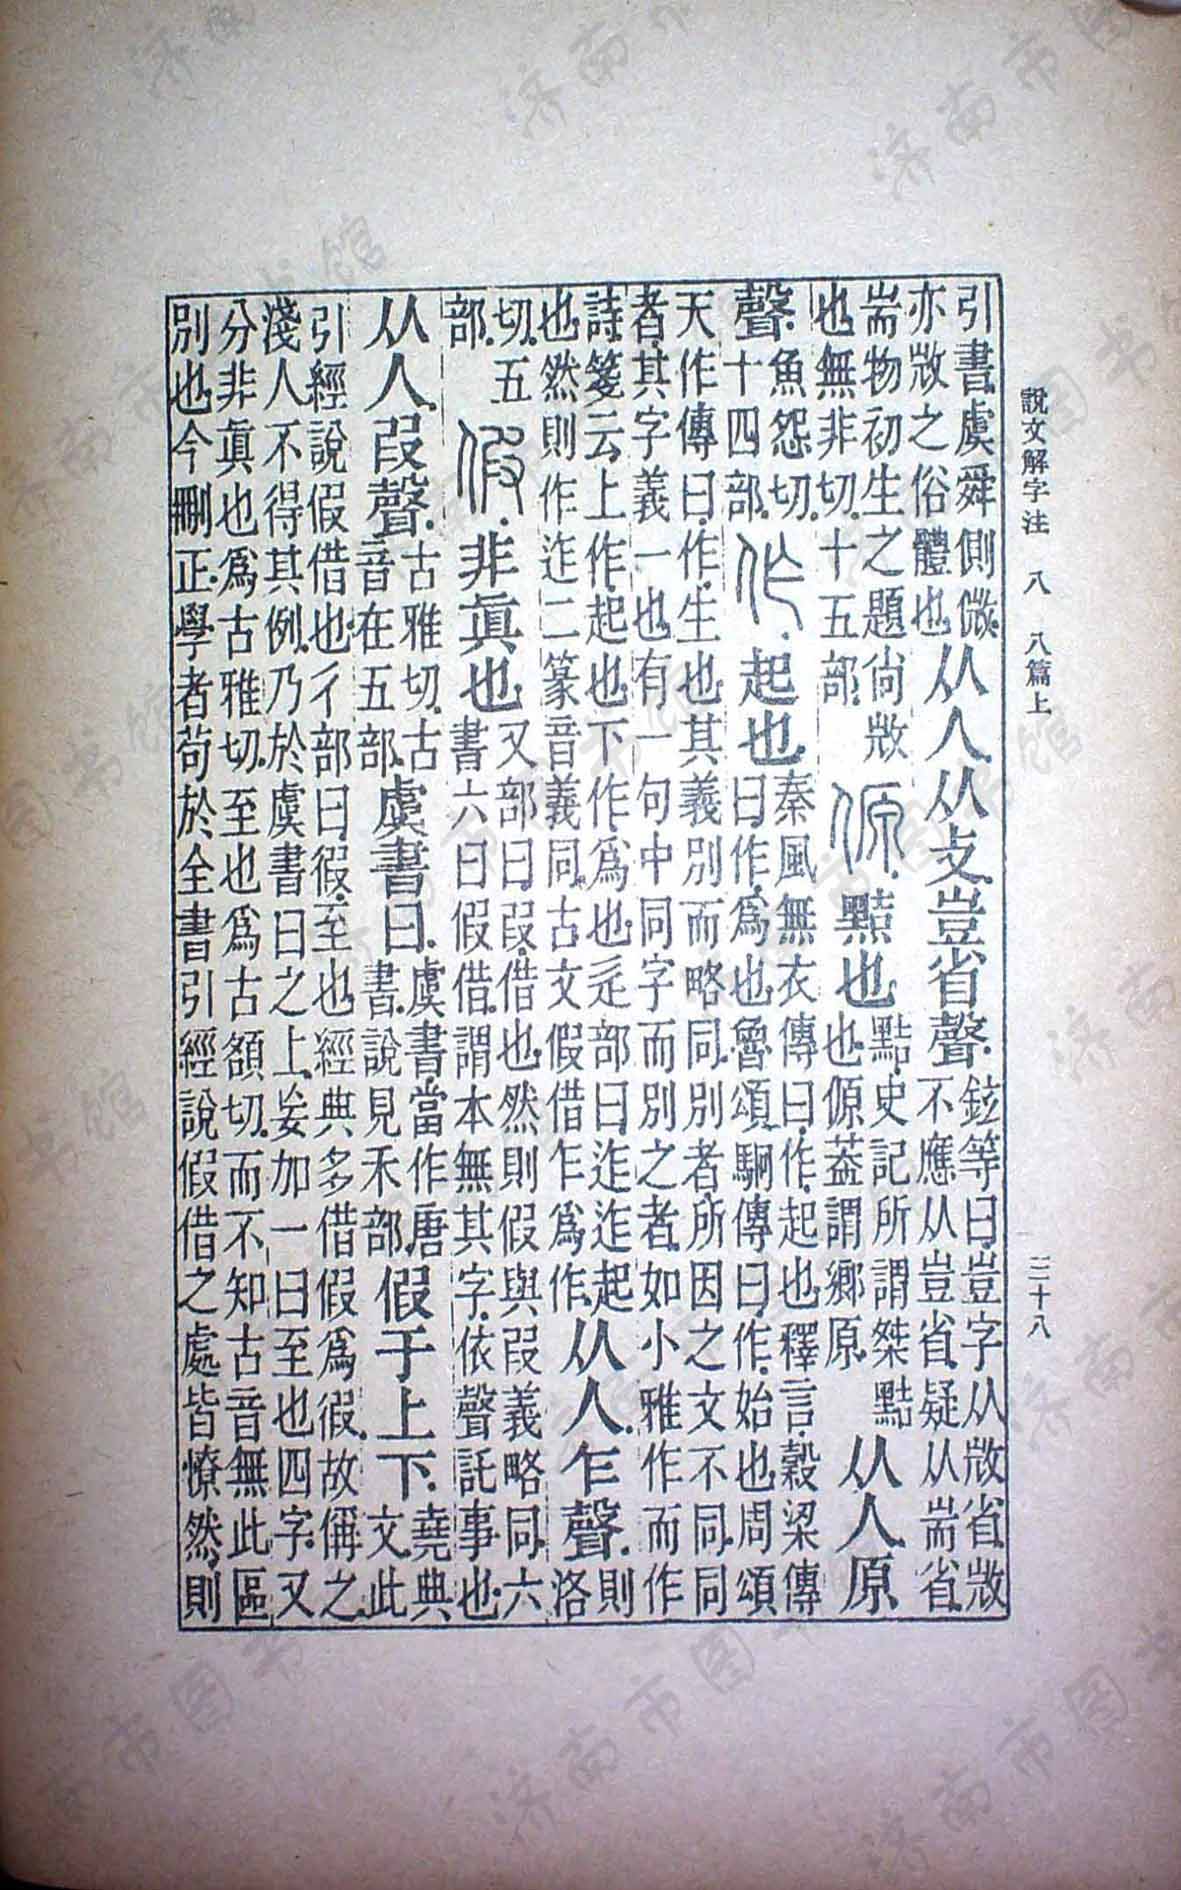 說文解字注 八 八篇上 三十八
引書虞舜側微亦𢼸之俗體也从人从攴豈省聲鉉等曰豈字从𢼸省𢼸不應从豈省疑从耑省
耑物初生之題尙𢼸也無非切十五部傆黠也黠史記所謂桀黠也傆葢謂鄉原从人原
聲魚怨切十四部作起也秦風無衣傳曰作起也釋言穀梁傳曰作爲也魯頌駉傳曰作始也周頌
天作傳曰作生也其義別而略同別者所因之文不同同者其字義一也有一句中同字而別之者如小雅作而作
詩箋云上作起也下作爲也辵部曰迮迮起也然則作迮二篆音義同古文假借乍爲作从人乍聲則洛
切五部假非眞也又部曰叚借也然則假與叚義略同六書六曰假借謂本無其字依聲託事也
从人叚聲古雅切古音在五部虞書曰虞書當作唐書說見禾部假于上下堯典文此
引經說假借也彳部曰徦至也經典多借假爲徦故偁之淺人不得其例乃於虞書曰之上妄加一曰至也四字又
分非眞也爲古雅切至也爲古頟切而不知古音無此區別也今刪正學者苟於全書引經說假借之處皆憭然則
济南市图书馆